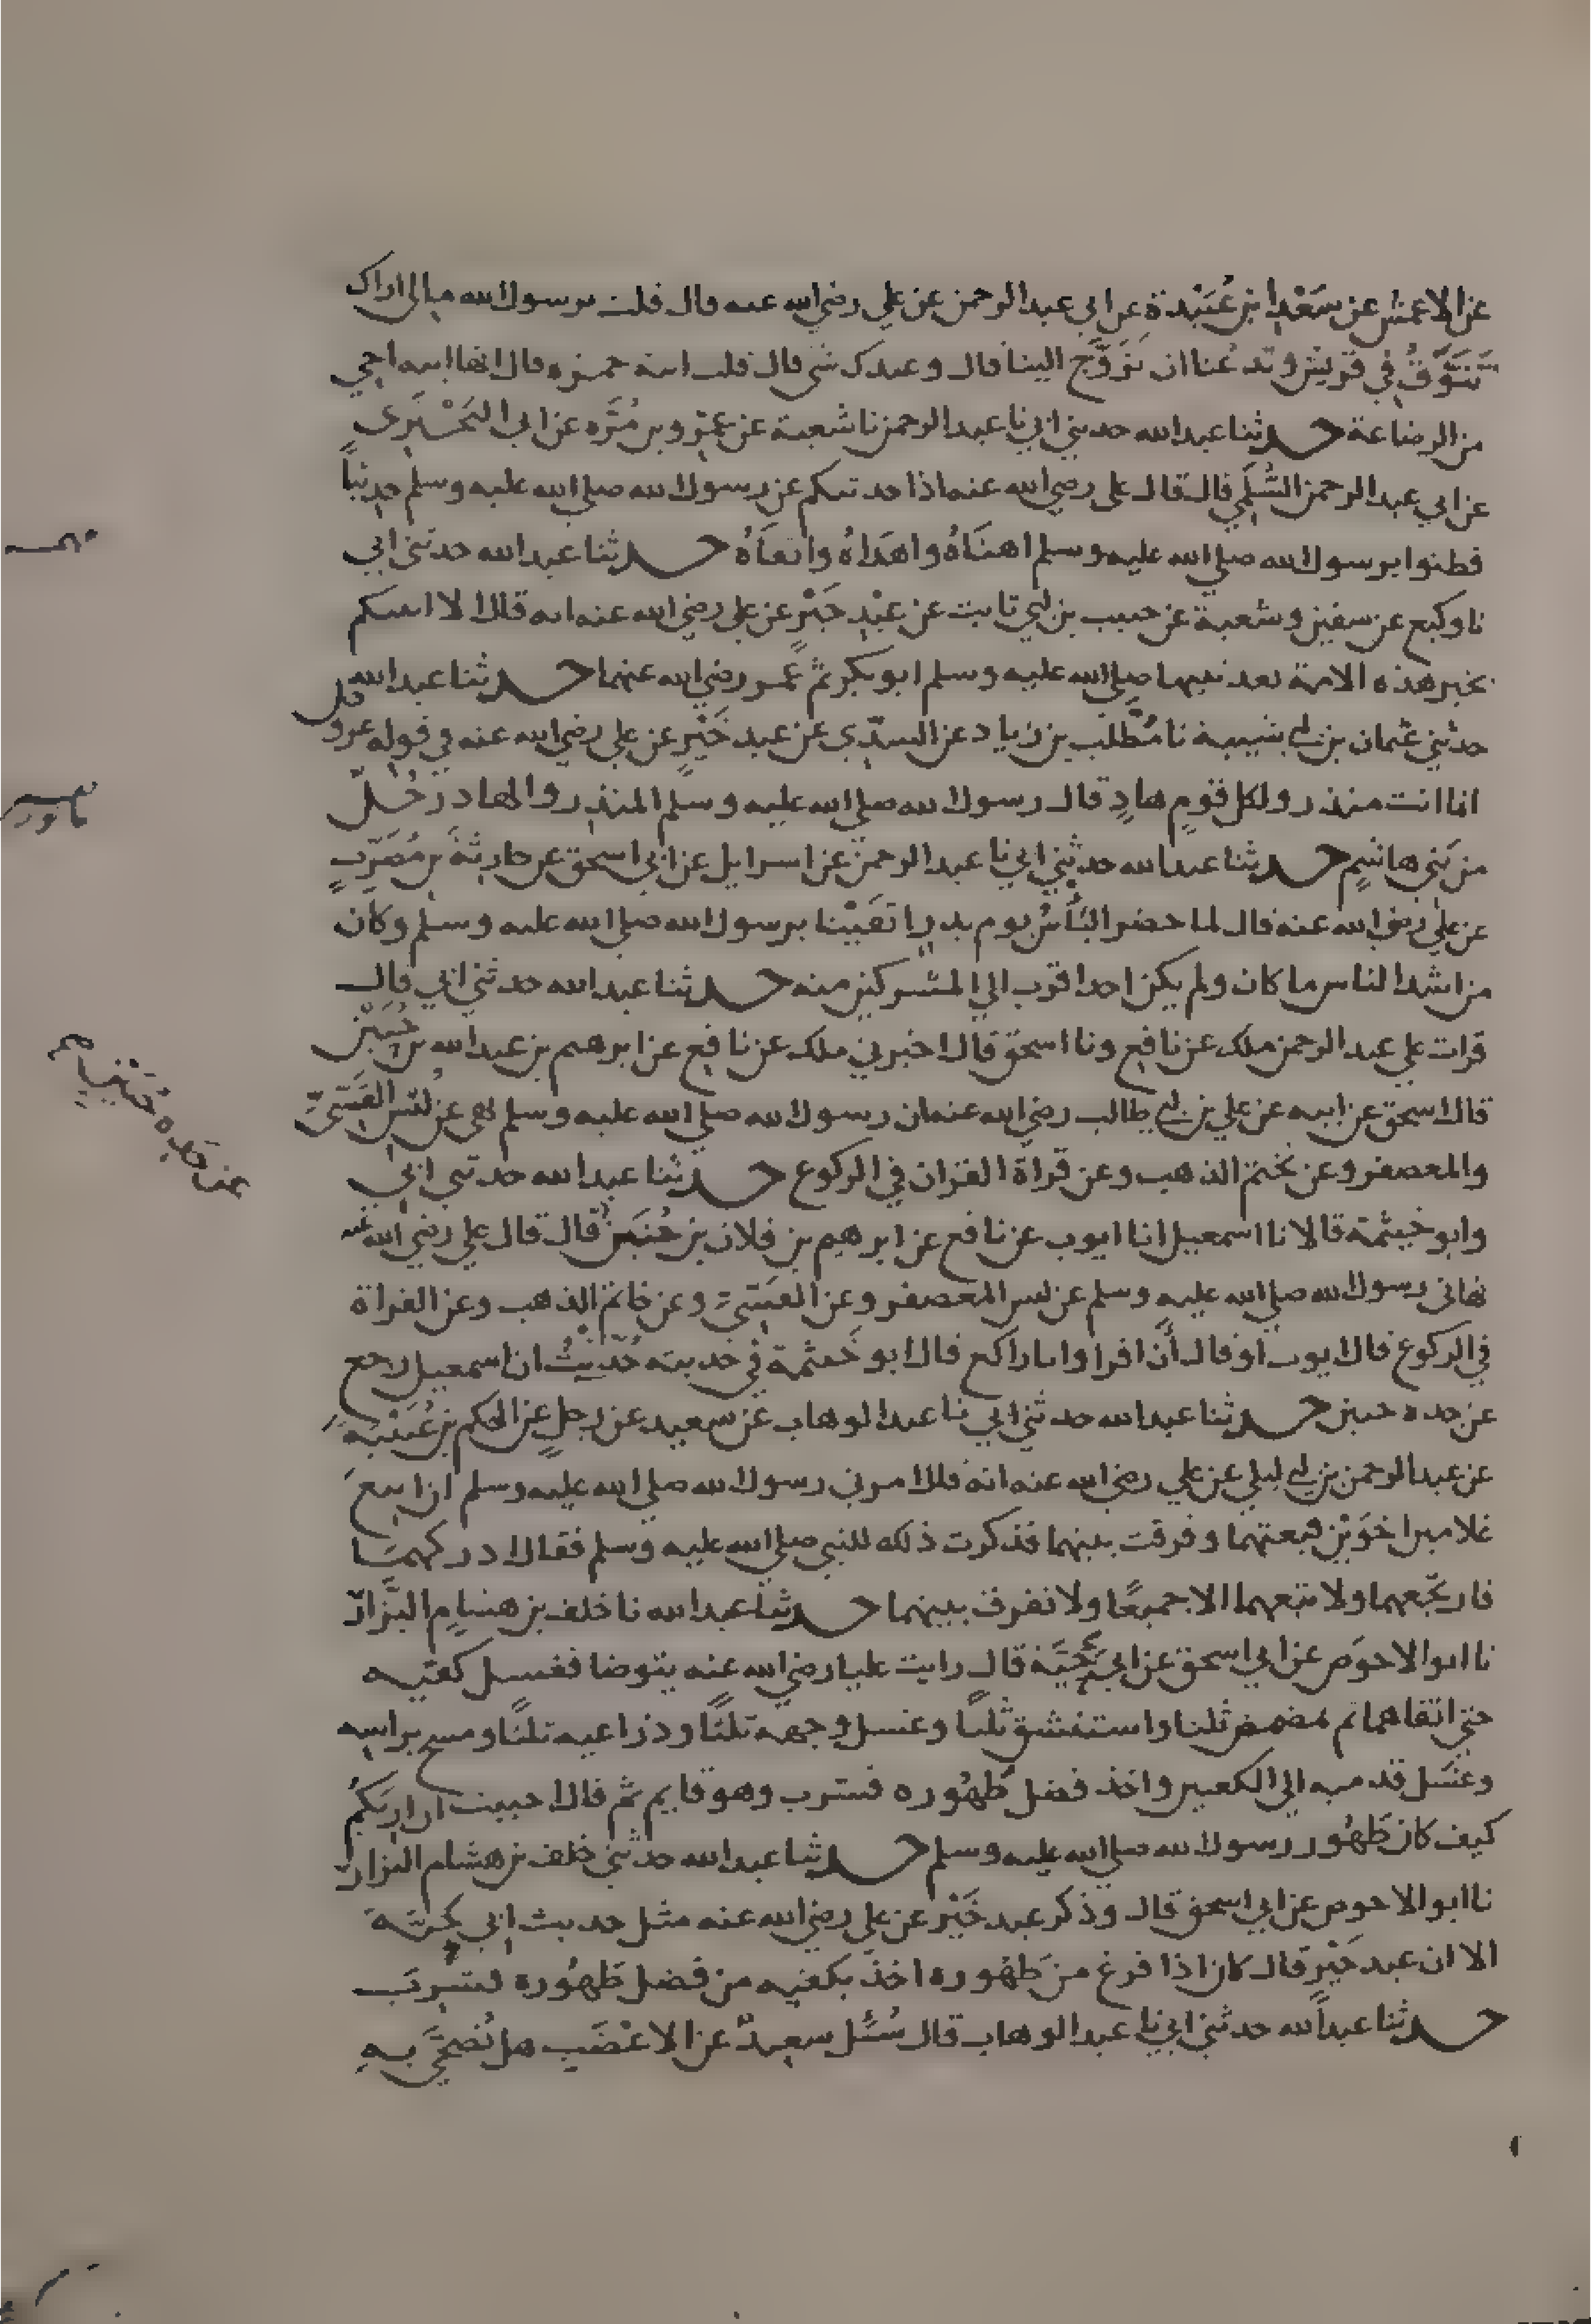 عن الاعمش عن سَعْدِ ابن عُبَيْدة عن ابي عبد الرحمن عن علي رضي الله عنه قال قلت يرسول الله مالي اراك
تَنَوَّقُ في قريش وتدعنا ان تزَوَّج الينا قال وعندك شي قال قلت ابنة حمزه قال انها ابنه اخي
من الرضاعة حدثنا عبد الله حدثني ابي نا عبد الرحمن نا شعبة عن عمرو بن مُرَّه عن ابي البَخْتَري
عن ابي عبد الرحمن السُّلَمي قال قال علي رضي الله عنه اذا حدثتكم عن رسول الله صلي الله عليه وسلم حديثاً
فظنوا برسول الله صلي الله عليه وسلم اهنَاهُ واهدَاهُ واتقَاهُ حدثنا عبد الله حدثني ابي
نا وكيع عن سفين وشعبة عن حبيب بن ابي ثابت عن عبْدِ خَيْرٍ عن علي رضي الله عنه انه قال الا انبيكم
بخير هذه الامة بعد نبيها صلي الله عليه وسلم ابو بكر ثم عُمر رضي الله عنهما حدثنا عبد الله قال
حدثني عثمان بن ابي شيبة نا مُطَّلب بن زياد عن السدّي عن عبد خَيْرٍ عن علي رضي الله عنه في قوله عز و
انما انت منذر ولكل قومٍ هادٍ قال رسول الله صلي الله عليه وسلم المنذر والهاد رَجُلٌ
من بَني هاشمٍ حدثنا عبد الله حدثني ابي نا عبد الرحمن عن اسرايل عن ابي اسحق عن حارثةَ بن مُضَرِّبٍ
عن علي رضي الله عنه قال لما حضر البَأسُ يوم بدرٍ اتقَيْنا برسول الله صلي الله عليه وسلم وكان
من اشد الناس ما كان ولم يكن احدا قرب الي المشركين منه حدثنا عبد الله حدثني ابي قال
قرات علي عبد الرحمن ملك عن نافع ونا اسحق قال اخبرني ملك عن نافع عن ابرهيم بن عبد الله بن حُنَيْن
قال اسحق عن ابيه عن علي بن ابي طالب رضي الله عنه ان رسول الله صلي الله عليه وسلم نهي عن لُبْس القَسّيّ
والمعصفر وعن تختم الذهب وعن قراة القران في الركوع حدثنا عبد الله حدثني ابي
وابو خيثمة قالا نا اسمعيل انا ايوب عن نافع عن ابرهيم بن فلان بن حُنَين قال قال علي رضي الله عنه
نهاني رسول الله صلي الله عليه وسلم عن لبس المعصفر وعن القَسّيّ وعن خاتم الذهب وعن القراة
في الركوع قال ايوب او قال أن اقرا وانا راكع قال ابو خَيثمة في حديثه حُدّثْتُ ان اسمعيل رجع
عن جده حنين حدثنا عبد الله حدثني ابي نا عبد الوهاب عن سعيد عن رجلٍ عن الحكم بن عُتَيْبَة
عن عبد الرحمن بن ابي ليلي عن علي رضي الله عنه انه قال امرني رسول الله صلي الله عليه وسلم ان ابيعَ
غلامين اخوَيْن فبعتهما وفرقت بينهما فذكرت ذلك للنبي صلي الله عليه وسلم فقال ادركهما
فارتجعهما ولا تبعهما الا جميعًا ولا تفرق بينهما حدثنا عبد الله نا خلف بن هشامٍ البزَّار
نا ابو الاحوَص عن ابي اسحق عن ابي حَيَّة قال رايت عليا رضي الله عنه يتوضا فغسل كفيه
حتي انقاهما ثم مضمض ثلثا واستنشق ثلثاً وغسل وجهه ثلثًا وذراعيه ثلثًا ومسح براسه
وغسَل قدميه الي الكعبين واخذ فضل طَهُوره فشرب وهو قايم ثم قال احببت ان اريكُمْ
كيف كان طَهُور رسول الله صلي الله عليه وسلم حدثنا عبد الله حدثني خلف بن هشام البزار
نا ابو الاحوص عن ابي اسحق قال وذكر عبد خَيْر عن علي رضي الله عنه مثل حديث ابي حَيّةَ
الا ان عبد خَيْرٍ قال كان اذا فرغ من طَهُوره اخذ بكفيه من فضل طَهُوره فشرِبَ
حدثنا عبد الله حدثني ابي نا عبد الوهاب قال سُئل سعيدٌ عن الاعْضَبِ هل يُضحَّي بهِ
عن جده حُنَيْن صح